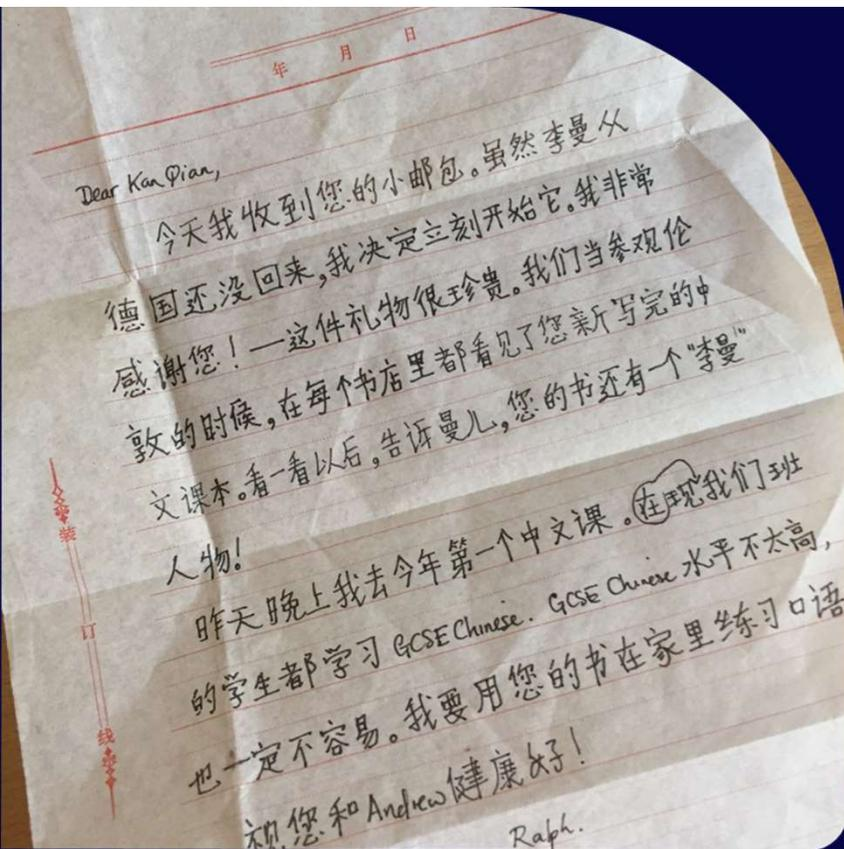 年 月 日
Dear Kan Qian,
今天我收到您的小邮包。虽然李曼从
德国还没回来,我决定立刻开始它。我非常
感谢您!—这件礼物很珍贵。我们当参观伦
敦的时候,在每个书店里都看见了您新写完的中
文课本。看一看以后,告诉曼儿,您的书还有一个"李曼"
人物!
昨天晚上我去今年第一个中文课。在现我们班
的学生都学习GCSE Chinese. GCSE Chinese水平不太高,
也一定不容易。我要用您的书在家里练习口语
祝您和Andrew健康好!
Ralph.
装
订
线